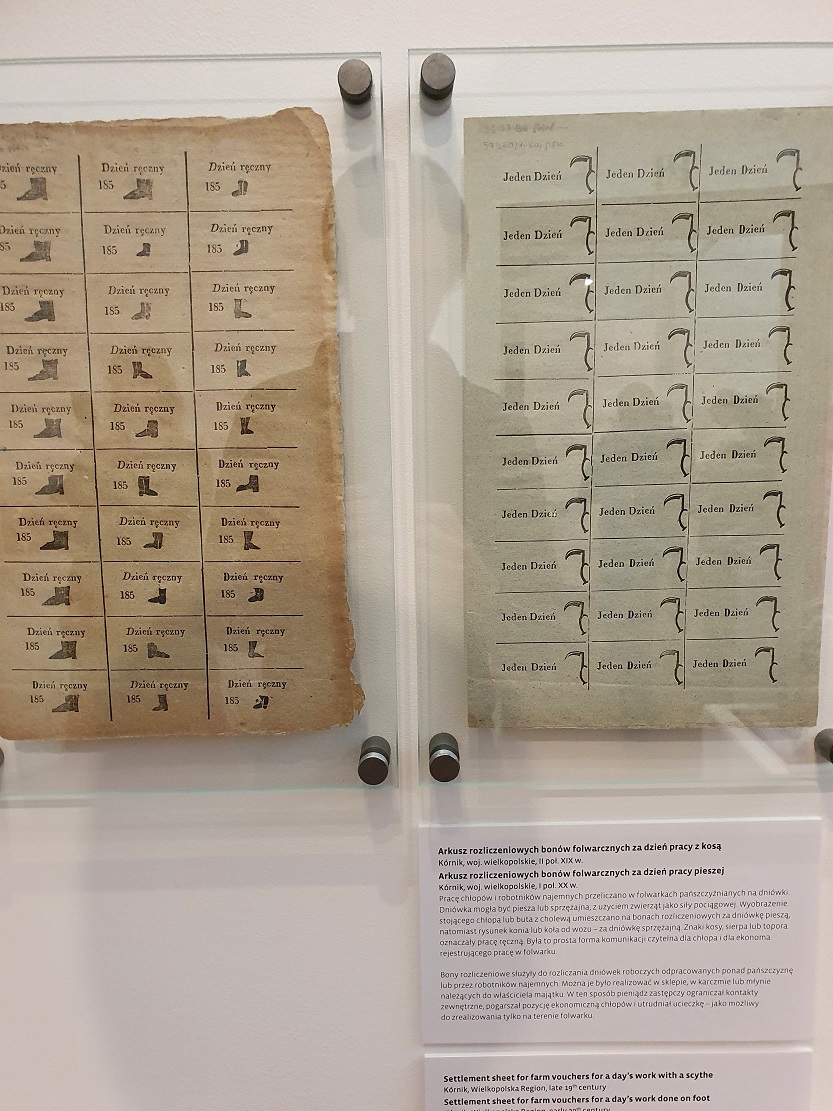 Dzień ręczny Dzień ręczny Dzień ręczny
185 185 185
Dzień ręczny Dzień ręczny Dzień ręczny
185 185 185
Dzień ręczny Dzień ręczny Dzień ręczny
185 185 185
Dzień ręczny Dzień ręczny Dzień ręczny
185 185 185
Dzień ręczny Dzień ręczny Dzień ręczny
185 185 185
Dzień ręczny Dzień ręczny Dzień ręczny
185 185 185
Dzień ręczny Dzień ręczny Dzień ręczny
185 185 185
Dzień ręczny Dzień ręczny Dzień ręczny
185 185 185
Dzień ręczny Dzień ręczny Dzień ręczny
185 185 185
Dzień ręczny Dzień ręczny Dzień ręczny
185 185 185
Jeden Dzień Jeden Dzień Jeden Dzień
Jeden Dzień Jeden Dzień Jeden Dzień
Jeden Dzień Jeden Dzień Jeden Dzień
Jeden Dzień Jeden Dzień Jeden Dzień
Jeden Dzień Jeden Dzień Jeden Dzień
Jeden Dzień Jeden Dzień Jeden Dzień
Jeden Dzień Jeden Dzień Jeden Dzień
Jeden Dzień Jeden Dzień Jeden Dzień
Jeden Dzień Jeden Dzień Jeden Dzień
Jeden Dzień Jeden Dzień Jeden Dzień
Arkusz rozliczeniowych bonów folwarcznych za dzień pracy z kosą
Kórnik, woj. wielkopolskie, II poł. XIX w.
Arkusz rozliczeniowych bonów folwarcznych za dzień pracy pieszej
Kórnik, woj. wielkopolskie, I poł. XX w.
Pracę chłopów i robotników najemnych przeliczano w folwarkach pańszczyźnianych na dniówki.
Dniówka mogła być piesza lub sprzężajna, z użyciem zwierząt jako siły pociągowej. Wyobrażenie
stojącego chłopa lub buta z cholewą umieszczano na bonach rozliczeniowych za dniówkę pieszą,
natomiast rysunek konia lub koła od wozu – za dniówkę sprzężajną. Znaki kosy, sierpa lub topora
oznaczały pracę ręczną. Była to prosta forma komunikacji czytelna dla chłopa i dla ekonoma
rejestrującego pracę w folwarku.
Bony rozliczeniowe służyły do rozliczania dniówek roboczych odpracowanych ponad pańszczyznę
lub przez robotników najemnych. Można je było realizować w sklepie, w karczmie lub młynie
należących do właściciela majątku. W ten sposób pieniądz zastępczy ograniczał kontakty
zewnętrzne, pogarszał pozycję ekonomiczną chłopów i utrudniał ucieczkę – jako możliwy
do zrealizowania tylko na terenie folwarku.
Settlement sheet for farm vouchers for a day's work with a scythe
Kórnik, Wielkopolska Region, late 19th century
Settlement sheet for farm vouchers for a day's work done on foot